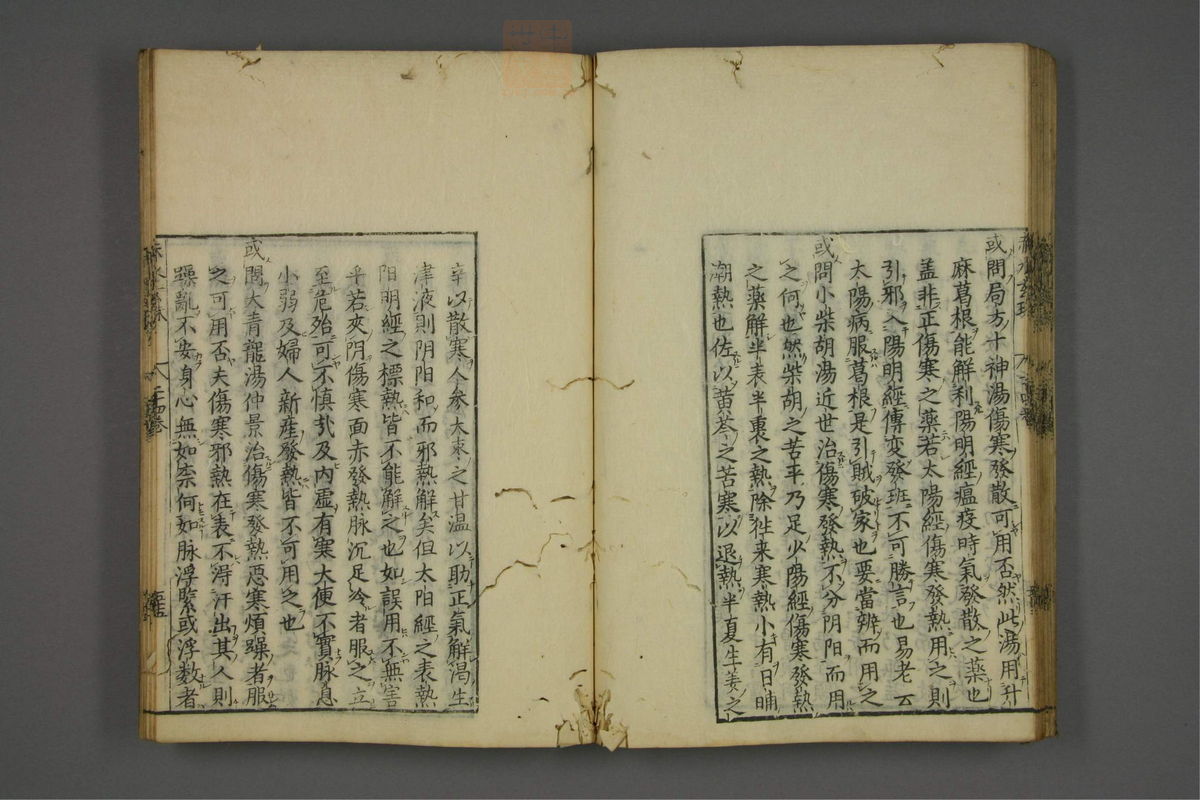 或問局方十神湯傷寒發散可用否然此湯用升
麻葛根能解利陽明經瘟疫時氣發散之藥也
盖非正傷寒之藥若太陽經傷寒發熱用之則
引邪入陽明經傳变發班不可勝言也易老云
太陽病服葛根是引賊破家也要當辨而用之
或問小柴胡湯近世治傷寒發熱不分阴阳而用
之何也然柴胡之苦平乃足少陽經傷寒發熱
之藥解半表半裏之熱除徃来寒熱小有日晡
潮熱也佐以黄芩之苦寒以退熱半夏生姜之
辛以散寒人参大枣之甘温以助正氣解渴生
津液則阴阳和而邪熱解矣但太阳經之表熱
阳明經之標熱皆不能解之也如誤用不無害
乎若夾阴傷寒面赤發熱脉沉足冷者服之立
至危殆可不慎㢤及内虚有寒大便不實脉息
小弱及婦人新産發熱皆不可用之也
或問大青龍湯仲景治傷寒發熱惡寒煩躁者服
之可用否夫傷寒邪熱在表不得汗出其人則
躁亂不安身心無如奈何如脉浮緊或浮数者